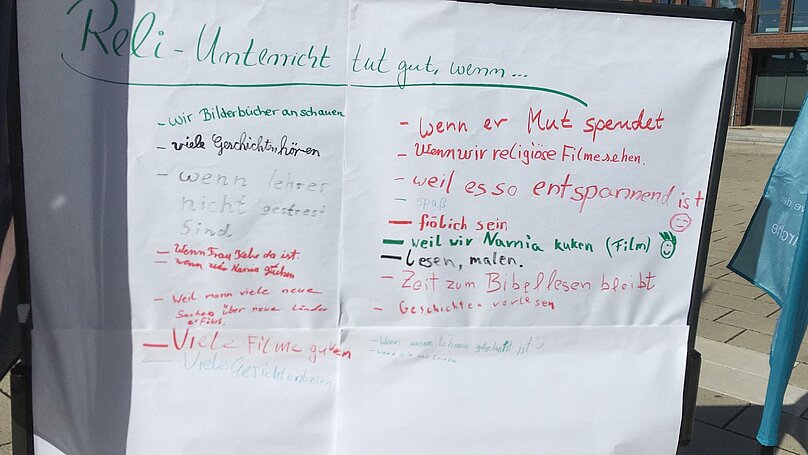 Reli-Unterricht tut gut, wenn...
- wir Bilderbücher anschauen
- viele Geschichten hören
- wenn lehrer
nicht gestrest
sind
- Wenn Frau Kehr da ist.
- wenn Narnia gucken
- Weil mann viele neue
Sachen über neue Länder
erfährt.
- Viele Filme guken
- Viele Gesichten lesen
- wenn er Mut spendet
- Wenn wir religiöse Filme sehen.
- weil es so entspannend ist
- spaß
- frölich sein
- weil wir Narnia kuken (Film)
- Lesen, malen.
- Zeit zum Bibellesen bleibt
- Geschichten vorlesen
- Wenn unsere Lehrerin ist